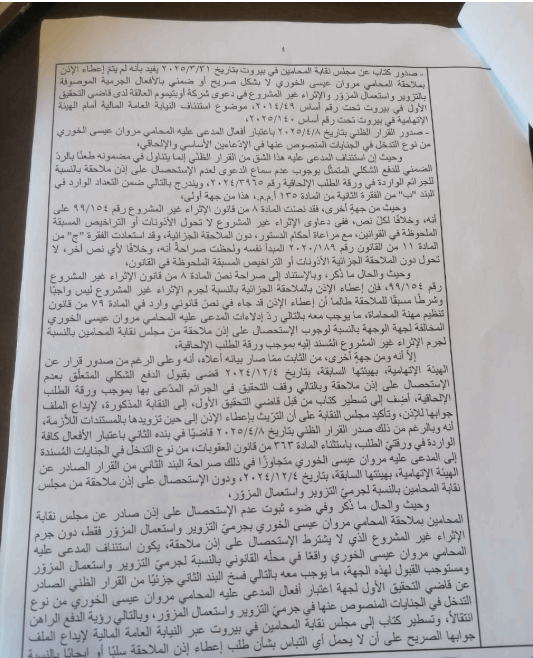 ٤
- صدور كتاب عن مجلس نقابة المحامين في بيروت بتاريخ ٢٠٢٥/٣/٣١ يفيد بأنه لم يتم إعطاء الإذن
بملاحقة المحامي مروان عيسى الخوري لا بشكل صريح أو ضمني بالأفعال الجرمية الموصوفة
بالتزوير واستعمال المزوّر والإثراء غير المشروع في دعوى شركة أوبتيموم العالقة لدى قاضي التحقيق
الأول في بيروت تحت رقم أساس ٢٠١٤/٤٩، موضوع استئناف النيابة العامة المالية أمام الهيئة
الإتهامية في بيروت تحت رقم أساس ٢٠٢٥/١٤٠،
- صدور القرار الظني بتاريخ ٢٠٢٥/٤/٨ باعتبار أفعال المدعى عليه المحامي مروان عيسى الخوري
من نوع التدخل في الجنايات المنصوص عنها في الإدعاءين الأساسي والإلحاقي،
وحيث إن استئناف المدعى عليه هذا الشق من القرار الظني إنما يتناول في مضمونه طعنًا بالردّ
الضمني للدفع الشكلي المتمثّل بوجوب عدم سماع الدعوى لعدم الإستحصال على إذن ملاحقة بالنسبة
للجرائم الواردة في ورقة الطلب الإلحاقية رقم ٢٠٢٤/٣٩٦٥، ويندرج بالتالي ضمن التعداد الوارد في
البند "ب" من الفقرة الثانية من المادة ١٣٥ أ.م.ج، هذا من جهة أولى،
وحيث من جهةٍ أخرى، فقد نصت المادة ٨ من قانون الإثراء غير المشروع رقم ٩٩/١٥٤ على
أنه، وخلافًا لكل نص، ففي دعاوى الإثراء غير المشروع لا تحول الأذونات أو التراخيص المسبقة
الملحوظة في القوانين، مع مراعاة أحكام الدستور، دون الملاحقة الجزائية، وقد استعادت الفقرة "ج" من
المادة ١١ من القانون رقم ٢٠٢٠/١٨٩ المبدأ نفسه ولحظت صراحةً أنه، وخلافًا لأي نص آخر، لا
تحول دون الملاحقة الجزائية الأذونات أو التراخيص المسبقة الملحوظة في القانون،
وحيث والحال ما ذُكر، وبالإستناد إلى صراحة نصّ المادة ٨ من قانون الإثراء غير المشروع
رقم ٩٩/١٥٤، فإن إعطاء الإذن بالملاحقة الجزائية بالنسبة لجرم الإثراء غير المشروع ليس واجبًا
وشرطًا مسبقًا للملاحقة طالما أن إعطاء الإذن قد جاء في نصّ قانوني وارد في المادة ٧٩ من قانون
تنظيم مهنة المحاماة، ما يوجب معه بالتالي ردّ إدلاءات المدعى عليه المحامي مروان عيسى الخوري
المخالفة لجهة الوجهة بالنسبة لوجوب الإستحصال على إذن ملاحقة من مجلس نقابة المحامين بالنسبة
لجرم الإثراء غير المشروع المُسند إليه بموجب ورقة الطلب الإلحاقية،
إلا أنه ومن جهةٍ أخرى، من الثابت ممّا صار بيانه أعلاه، أنه وعلى الرغم من صدور قرار عن
الهيئة الإتهامية، بهيئتها السابقة، بتاريخ ٢٠٢٤/١٢/٤ قضى بقبول الدفع الشكلي المتعلّق بعدم
الإستحصال على إذن ملاحقة وبالتالي وقف التحقيق في الجرائم المدّعى بها بموجب ورقة الطلب
الإلحاقية، أضِف إلى تسطير كتاب من قبل قاضي التحقيق الأول، إلى النقابة المذكورة، لإيداع الملف
جوابها للإذن، وتأكيد مجلس النقابة على أن التريّث بإعطاء الإذن إلى حين تزويدها بالمستندات اللازمة،
أنه وبالرغم من ذلك صدر القرار الظني بتاريخ ٢٠٢٥/٤/٨ قاضيًا في بنده الثاني باعتبار الأفعال كافة
الواردة في ورقتي الطلب، باستثناء المادة ٣٦٣ من قانون العقوبات، من نوع التدخل في الجنايات المُسندة
إلى المدعى عليه مروان عيسى الخوري متجاوزًا في ذلك صراحة البند الثاني من القرار الصادر عن
الهيئة الإتهامية، بهيئتها السابقة، بتاريخ ٢٠٢٤/١٢/٤، ودون الإستحصال على إذن ملاحقة من مجلس
نقابة المحامين بالنسبة لجرميّ التزوير واستعمال المزوّر،
وحيث والحال ما ذُكر وفي ضوء ثبوت عدم الإستحصال على إذن صادر عن مجلس نقابة
المحامين بملاحقة المحامي مروان عيسى الخوري بجرميّ التزوير واستعمال المزوّر فقط، دون جرم
الإثراء غير المشروع الذي لا يشترط الإستحصال على إذن ملاحقة، يكون استئناف المدعى عليه
المحامي مروان عيسى الخوري واقعًا في محلّه القانوني بالنسبة لجرميّ التزوير واستعمال المزوّر
ومستوجب القبول لهذه الجهة، ما يوجب معه بالتالي فسخ البند الثاني جزئيًا من القرار الظني الصادر
عن قاضي التحقيق الأول لجهة اعتبار أفعال المدعى عليه المحامي مروان عيسى الخوري من نوع
التدخل في الجنايات المنصوص عنها في جرميّ التزوير واستعمال المزوّر، وبالتالي رؤية الدفع الراهن
انتقالًا، وتسطير كتاب إلى مجلس نقابة المحامين في بيروت عبر النيابة العامة المالية لإيداع الملف
جوابها الصريح على أن لا يحمل أي التباس بشأن طلب إعطاء إذن الملاحقة سلبًا أو إيجابًا بالنسبة